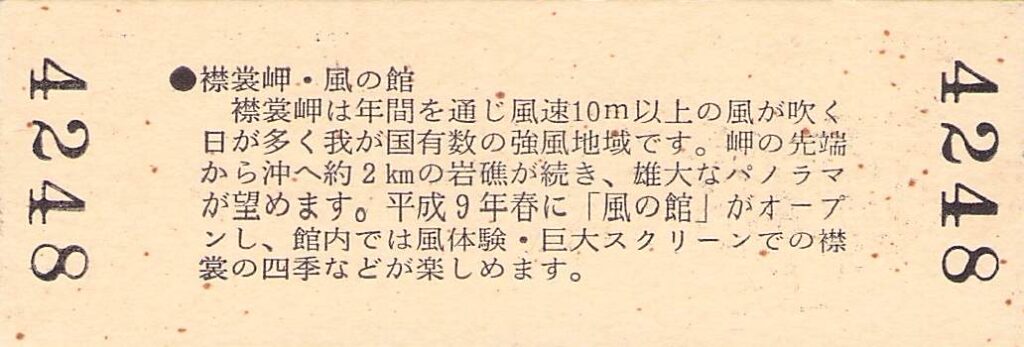 4248
●襟裳岬・風の館
襟裳岬は年間を通じ風速10m以上の風が吹く
日が多く我が国有数の強風地域です。岬の先端
から沖へ約2kmの岩礁が続き、雄大なパノラマ
が望めます。平成9年春に「風の館」がオープ
ンし、館内では風体験・巨大スクリーンでの襟
裳の四季などが楽しめます。
4248